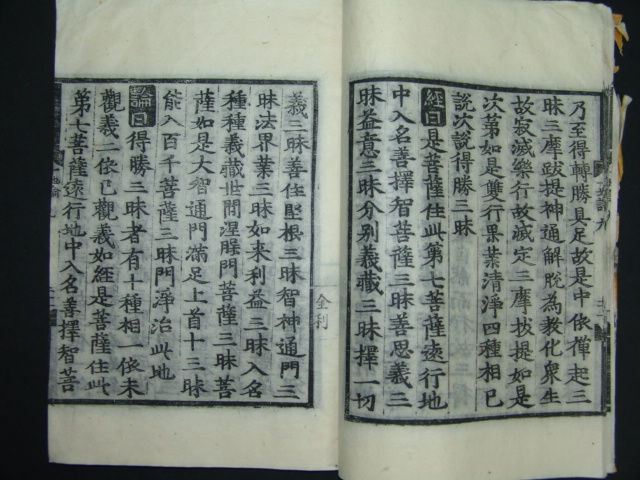 乃至得轉勝具足故是中依禪起三
昧三摩跋提神通解脫為教化衆生
故寂滅樂行故滅定三摩拔提如是
次第如是雙行果業清淨四種相已
說次說得勝三昧
經曰是菩薩住此第七菩薩遠行地
中入名善擇智菩薩三昧善思義三
昧益意三昧分別義藏三昧擇一切
義三昧善住堅根三昧智神通門三
昧法界業三昧如來利益三昧入名
種種義藏世間涅槃門菩薩三昧菩
薩如是大智通門滿足上首十三昧
能入百千菩薩三昧門淨治此地
論曰得勝三昧者有十種相一依未
觀義二依已觀義如經是菩薩住此
第七菩薩遠行地中入名善擇智菩
金刹